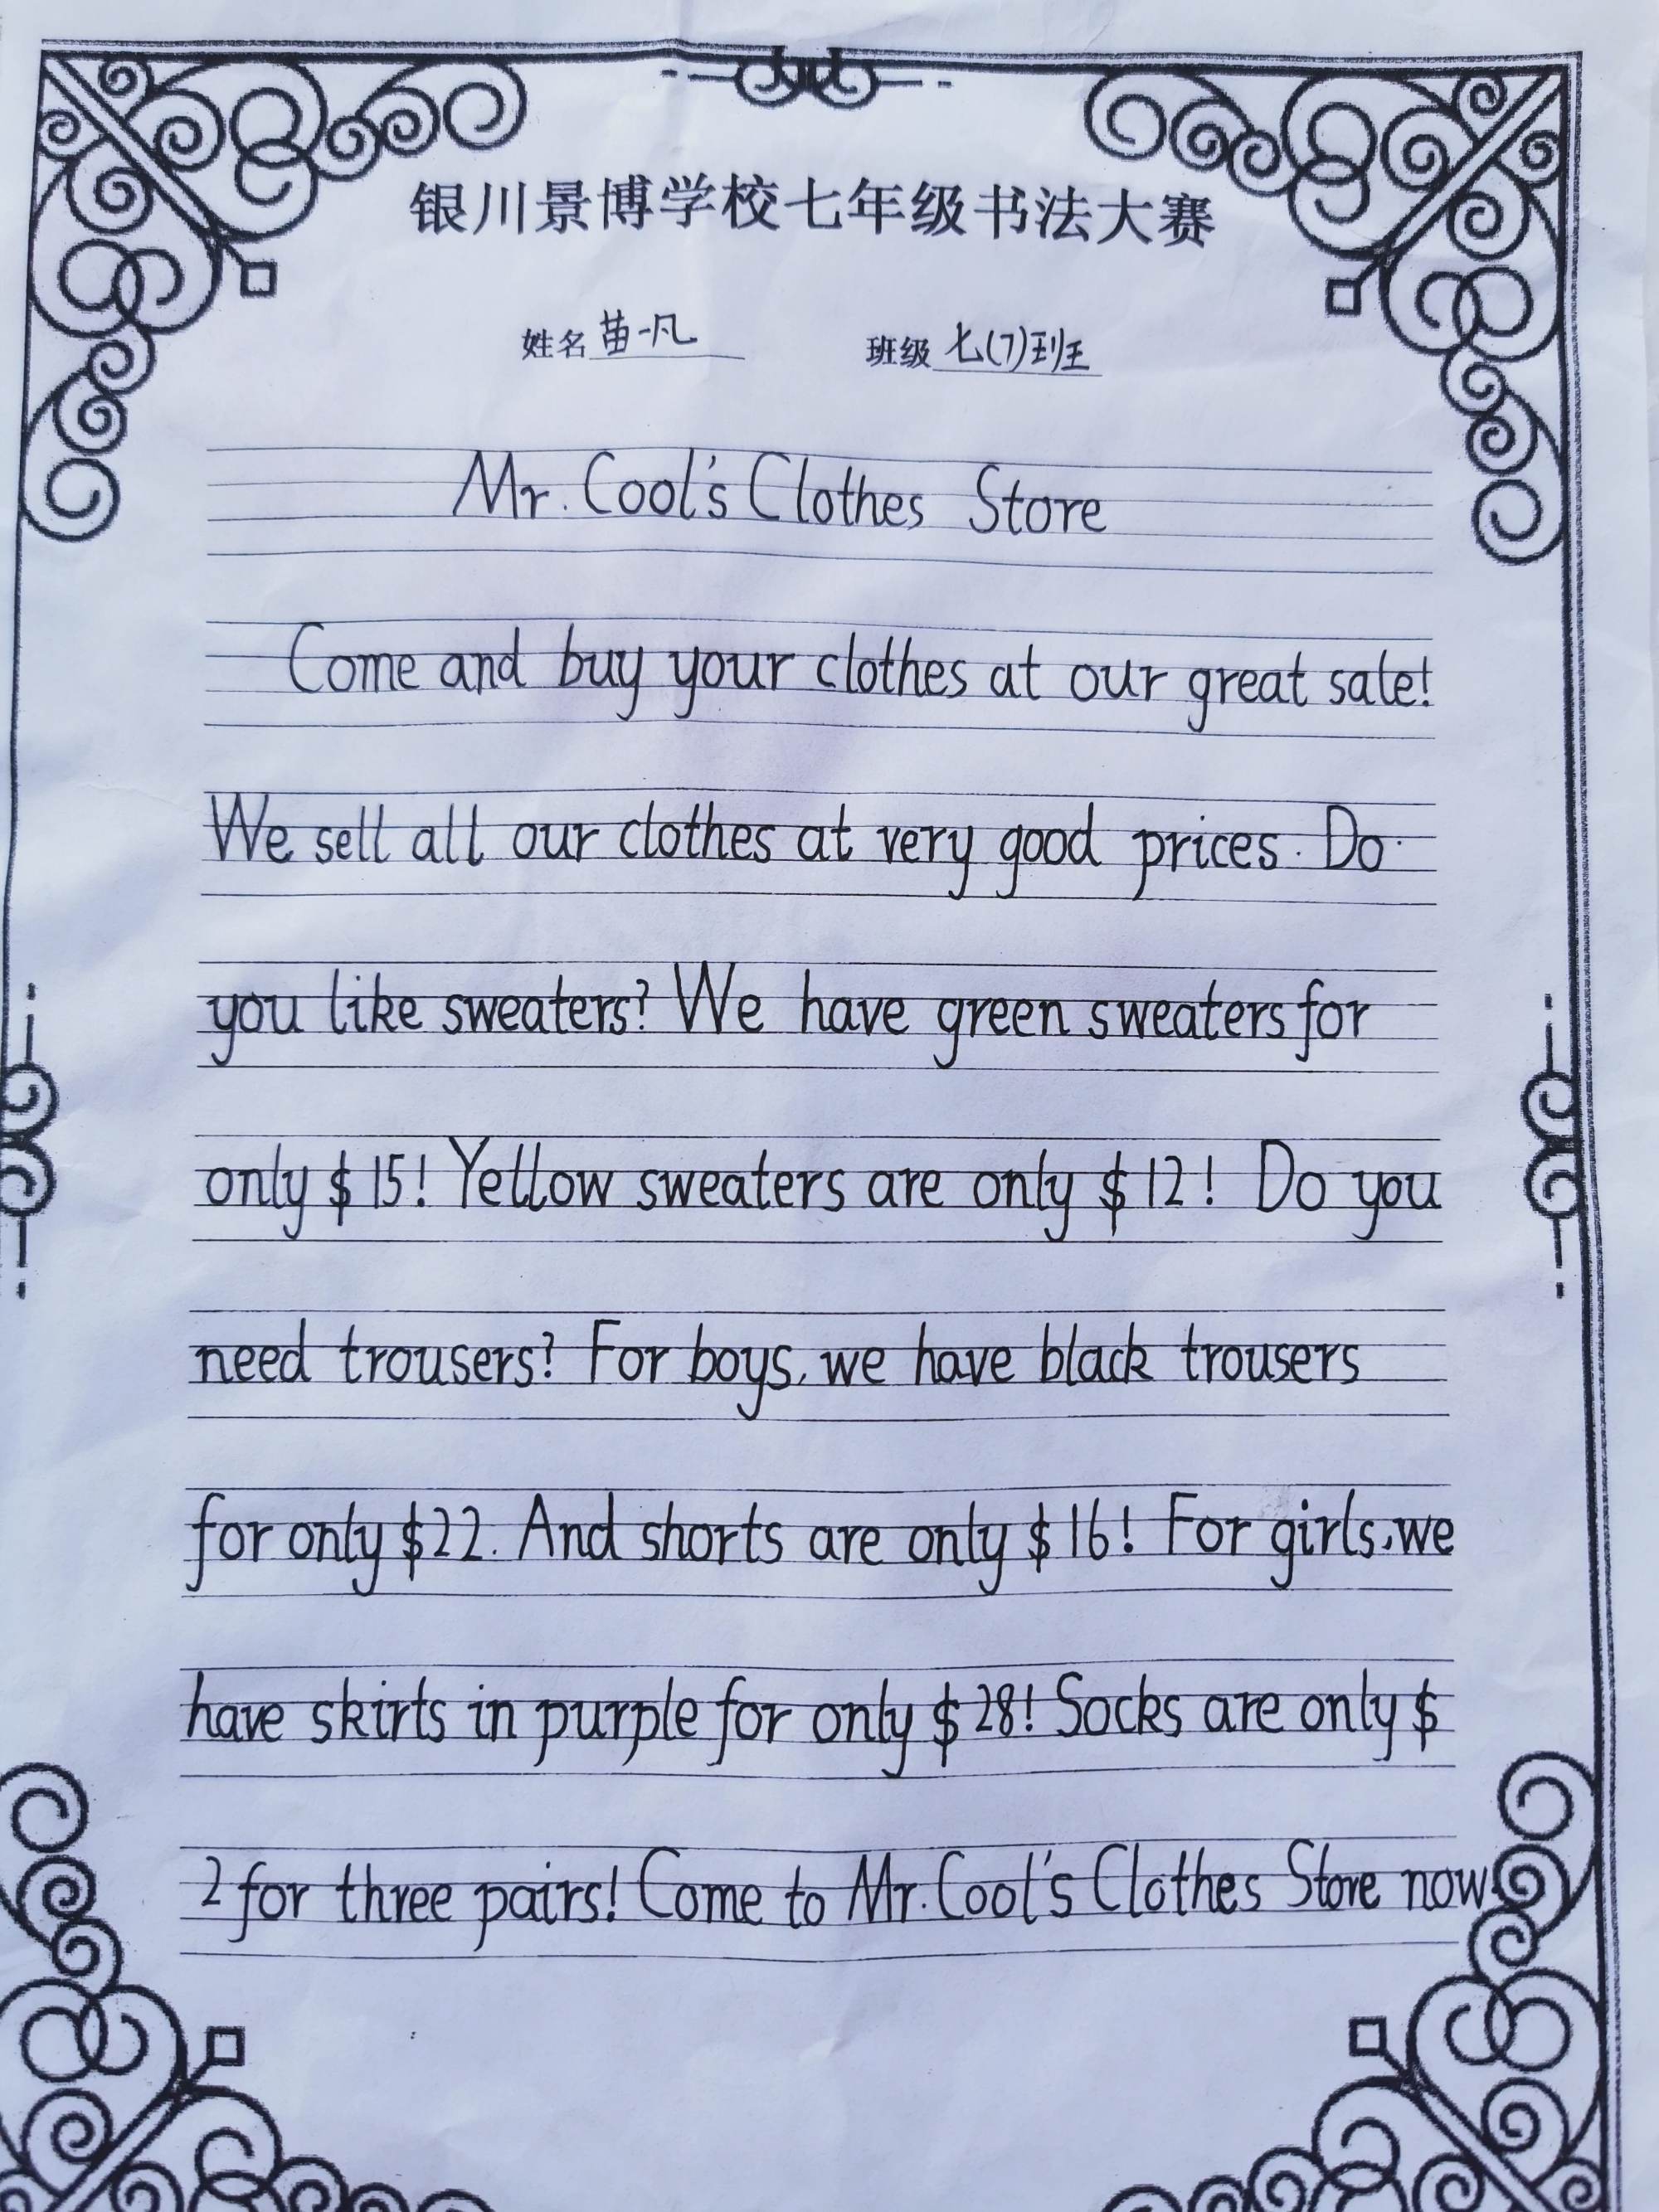 银川景博学校七年级书法大赛
姓名 苗一凡 班级 七(7)班
Mr. Cool's Clothes Store
Come and buy your clothes at our great sale!
We sell all our clothes at very good prices. Do
you like sweaters? We have green sweaters for
only $15! Yellow sweaters are only $12! Do you
need trousers? For boys, we have black trousers
for only $22. And shorts are only $16! For girls, we
have skirts in purple for only $28! Socks are only $
2 for three pairs! Come to Mr. Cool's Clothes Store now!